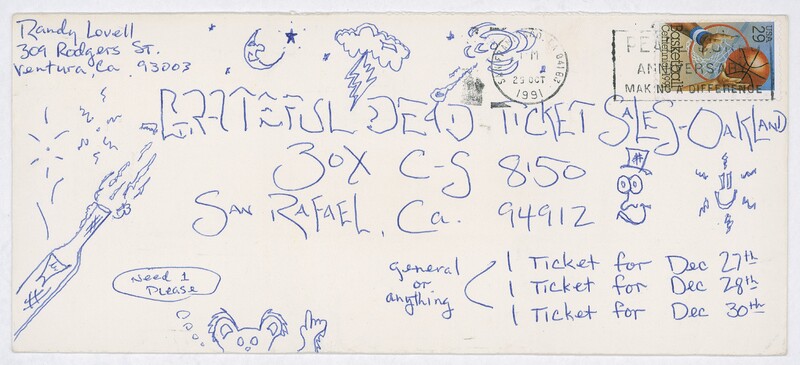 Randy Lovell
309 Rodgers St.
Ventura, Ca. 93003
PM
25 OCT
1991
PEACE CORPS
ANNIVERSARY
MAKING A DIFFERENCE
USA
29
Basketball
Centennial 1991
GRATEFUL DEAD TICKET SALES-OAKLAND
BOX C-S 8150
SAN RAFAEL, Ca. 94912
#
Need 1
Please
general
or
anything
1 Ticket for Dec 27th
1 Ticket for Dec 28th
1 Ticket for Dec 30th
#